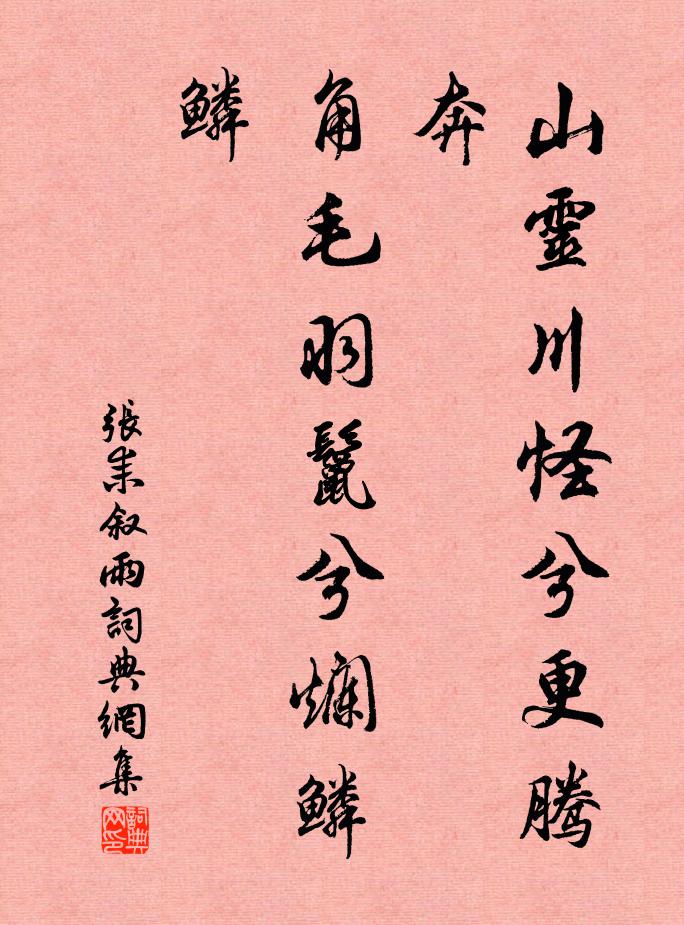 山靈川怪兮更騰
奔
角毛羽鬣兮爛鱗
鱗
張耒叙雨詞典網集
詞典网印